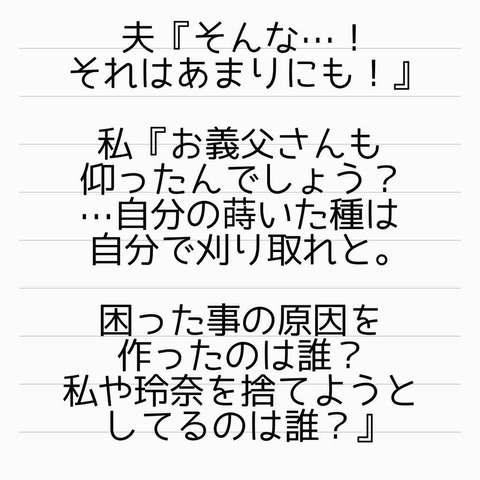 夫『そんな…！
それはあまりにも！』
私『お義父さんも
仰ったんでしょう？
…自分の蒔いた種は
自分で刈り取れと。
困った事の原因を
作ったのは誰？
私や玲奈を捨てようと
してるのは誰？』